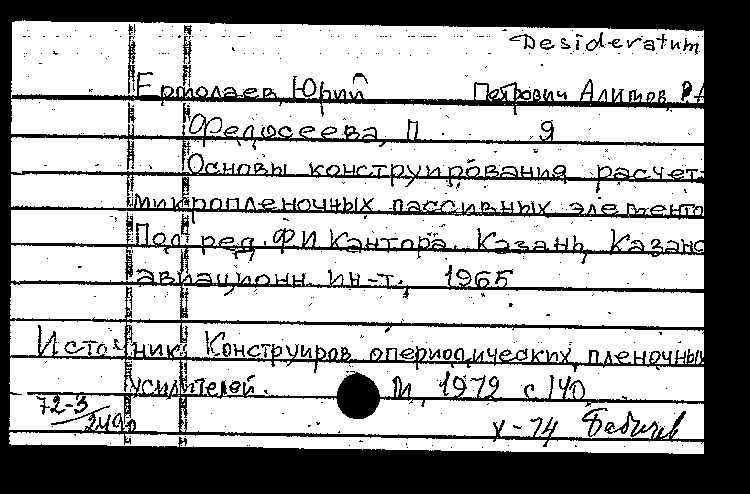 Desideratum
Ермолаев, Юрий Петрович Алимов, Р.А
Федосеева, Л Я
Основы конструирования расчет
микропленочных пассивных элементо
Под ред. Ф И Кантора. Казань, Казанс
авиационн. ин-т., 1965
Источник: Конструиров. опериодических, пленочных
усилителей. М, 1972 с. 140
72-3
2490
X-74 Бабичев